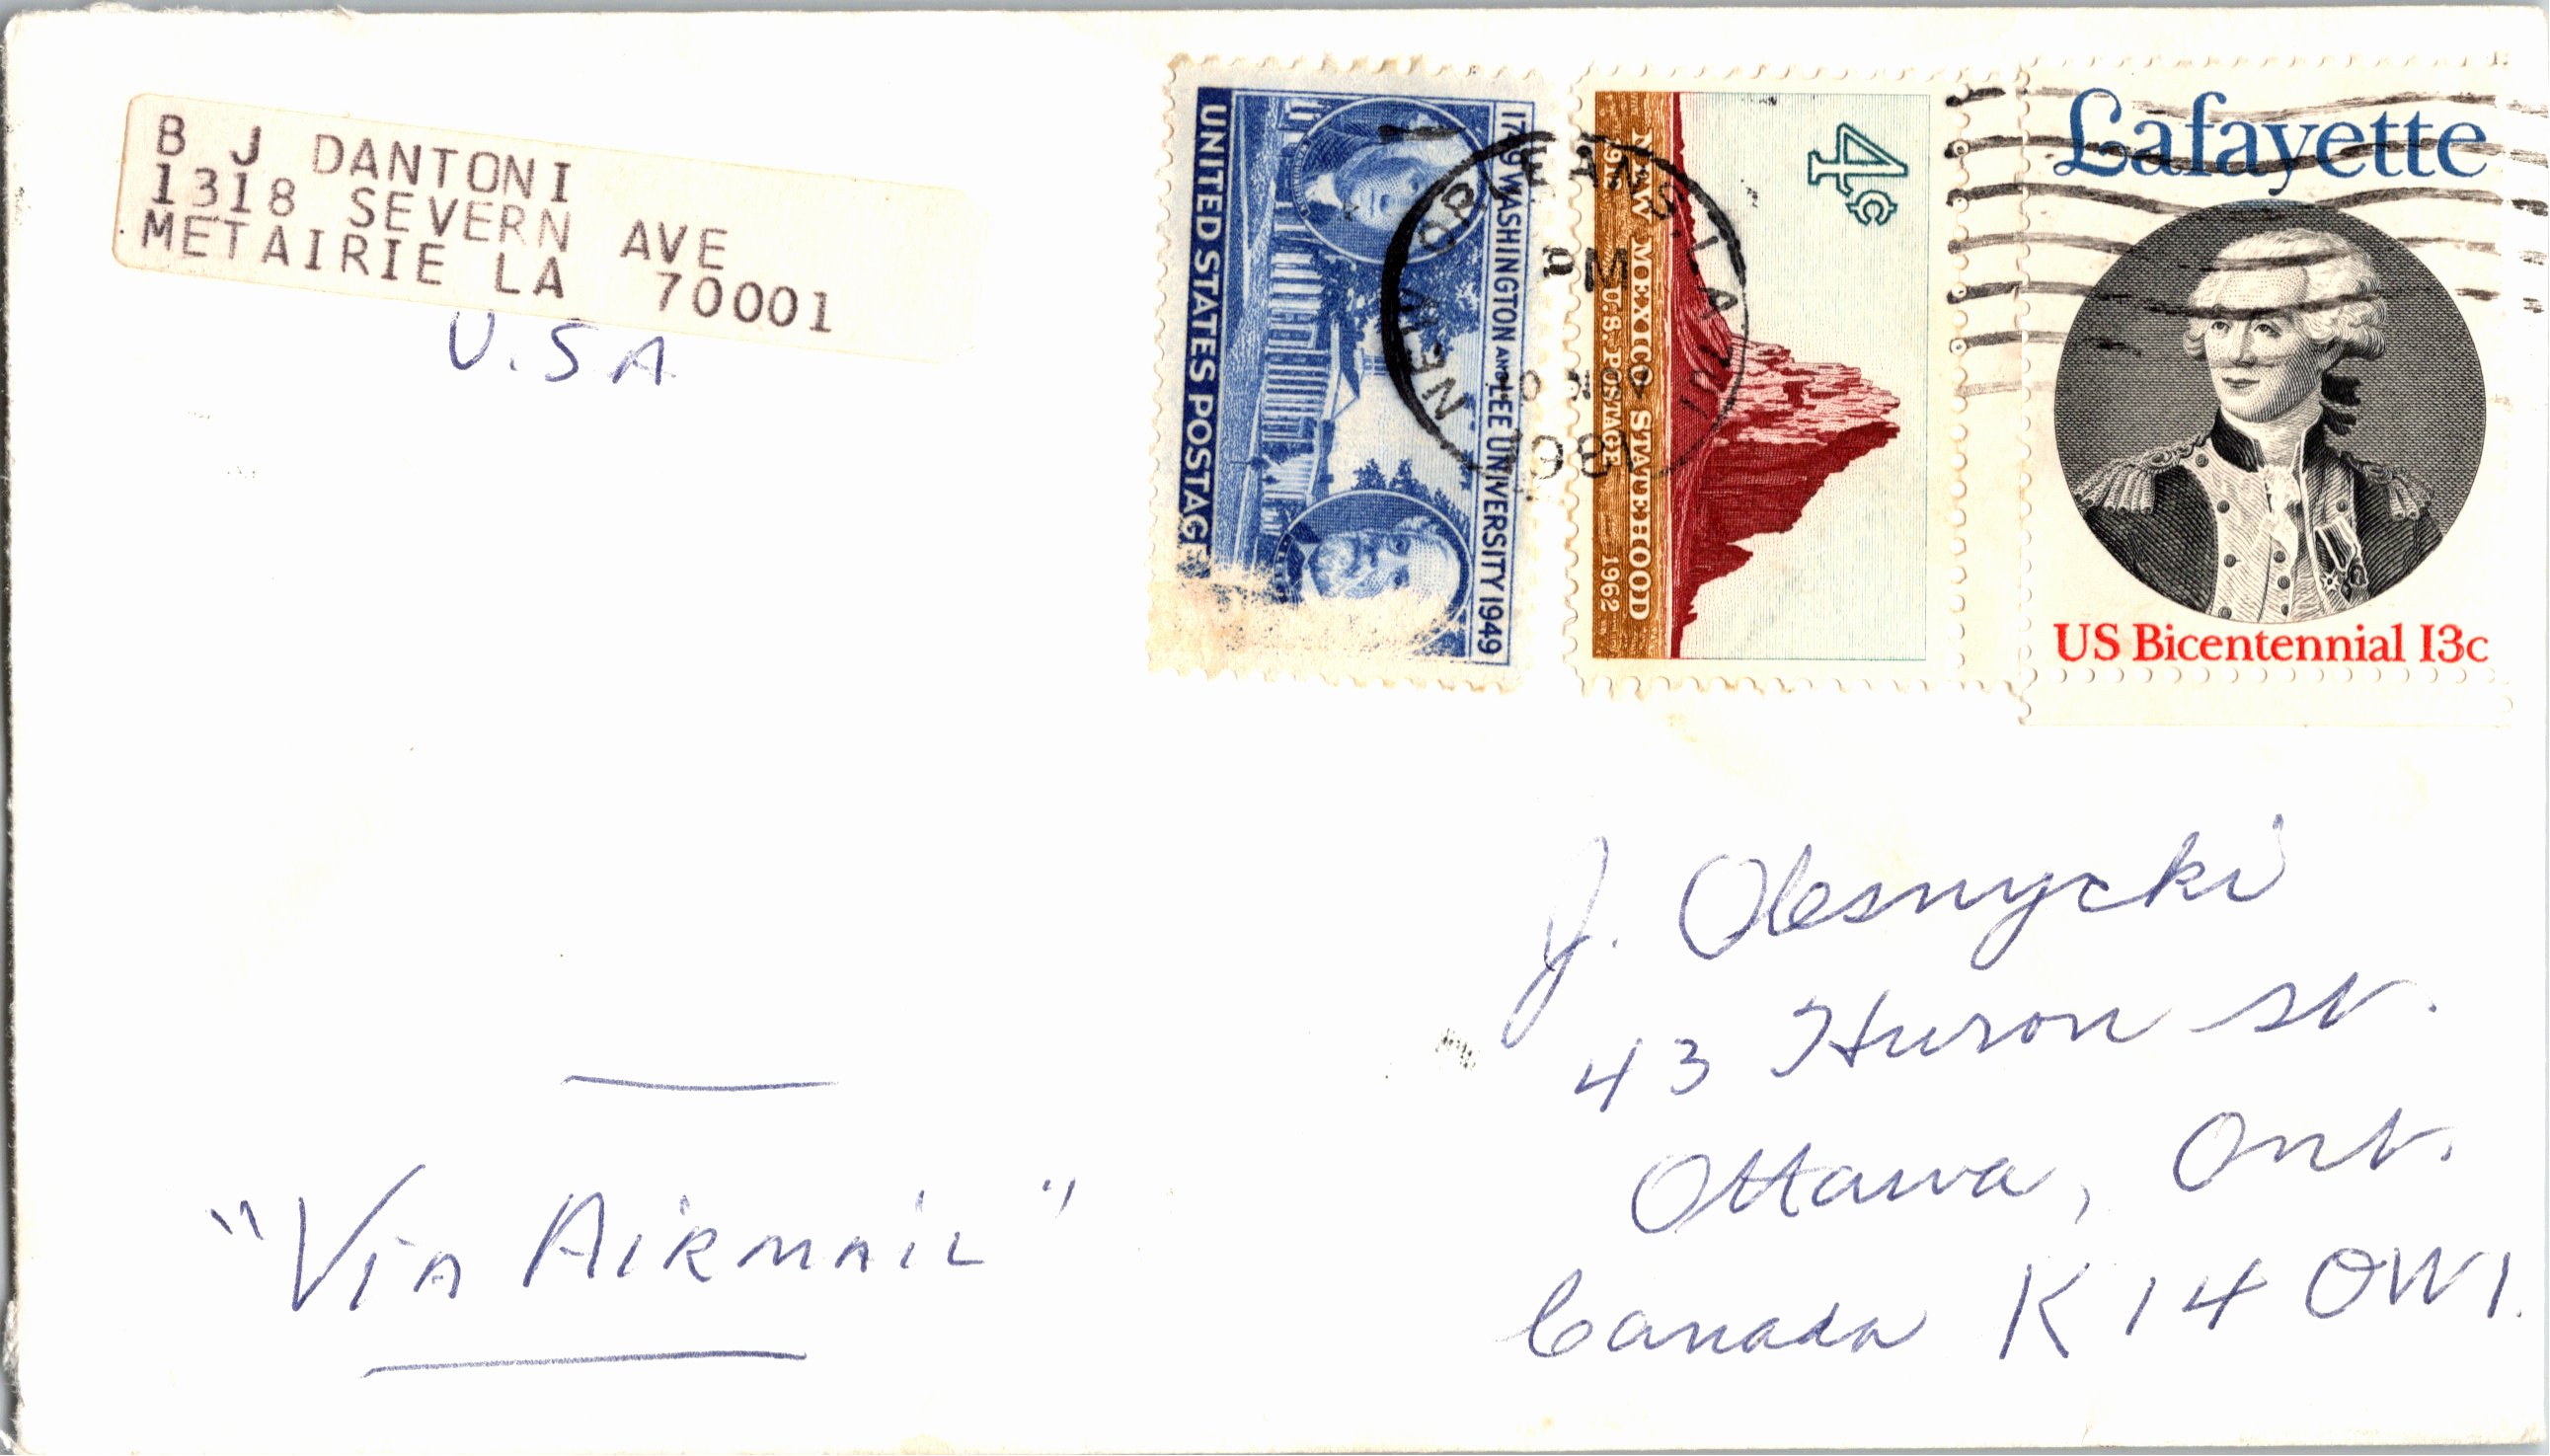 B J DANTONI
1318 SEVERN AVE
METAIRIE LA 70001
U.S.A
UNITED STATES POSTAGE
1749 WASHINGTON AND LEE UNIVERSITY 1949
NEW MEXICO STATEHOOD
1912 — U.S. POSTAGE — 1962
4c
NEW ORLEANS, LA 701
PM
1981
Lafayette
US Bicentennial 13c
J. Olesnycki
43 Huron St.
Ottawa, Ont.
Canada K 14 0W1.
"VIA AIRMAIL"